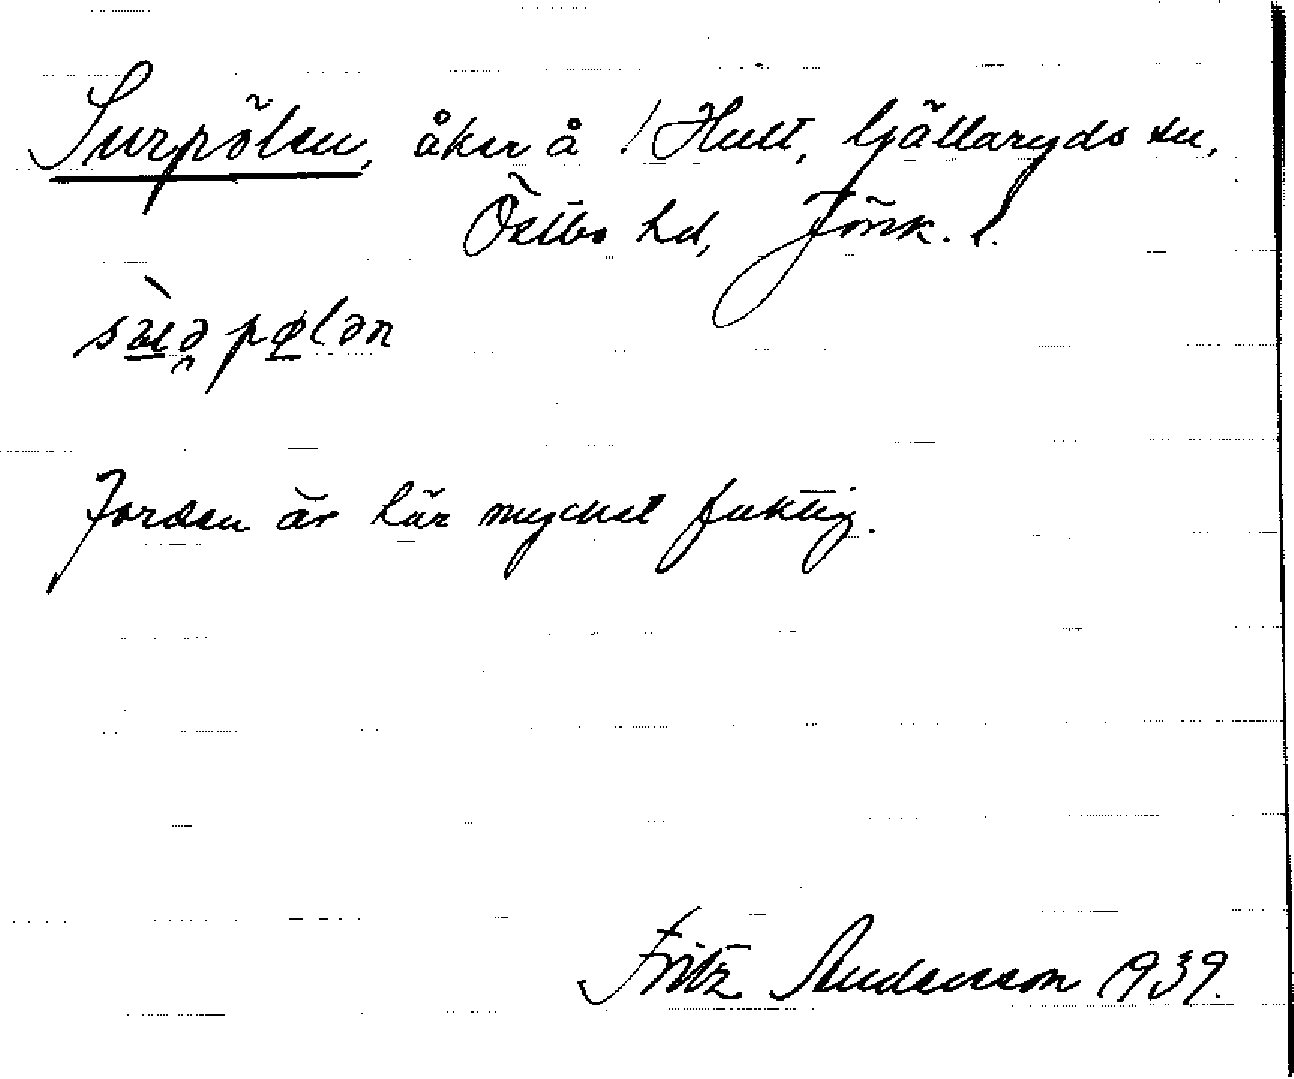 Surpölen, åker å /Hult, Gällaryds sn,
Östbo hd, Jönk. l.
pølən
Jorden är här mycket fuktig.
Fritz Andersson 1939.